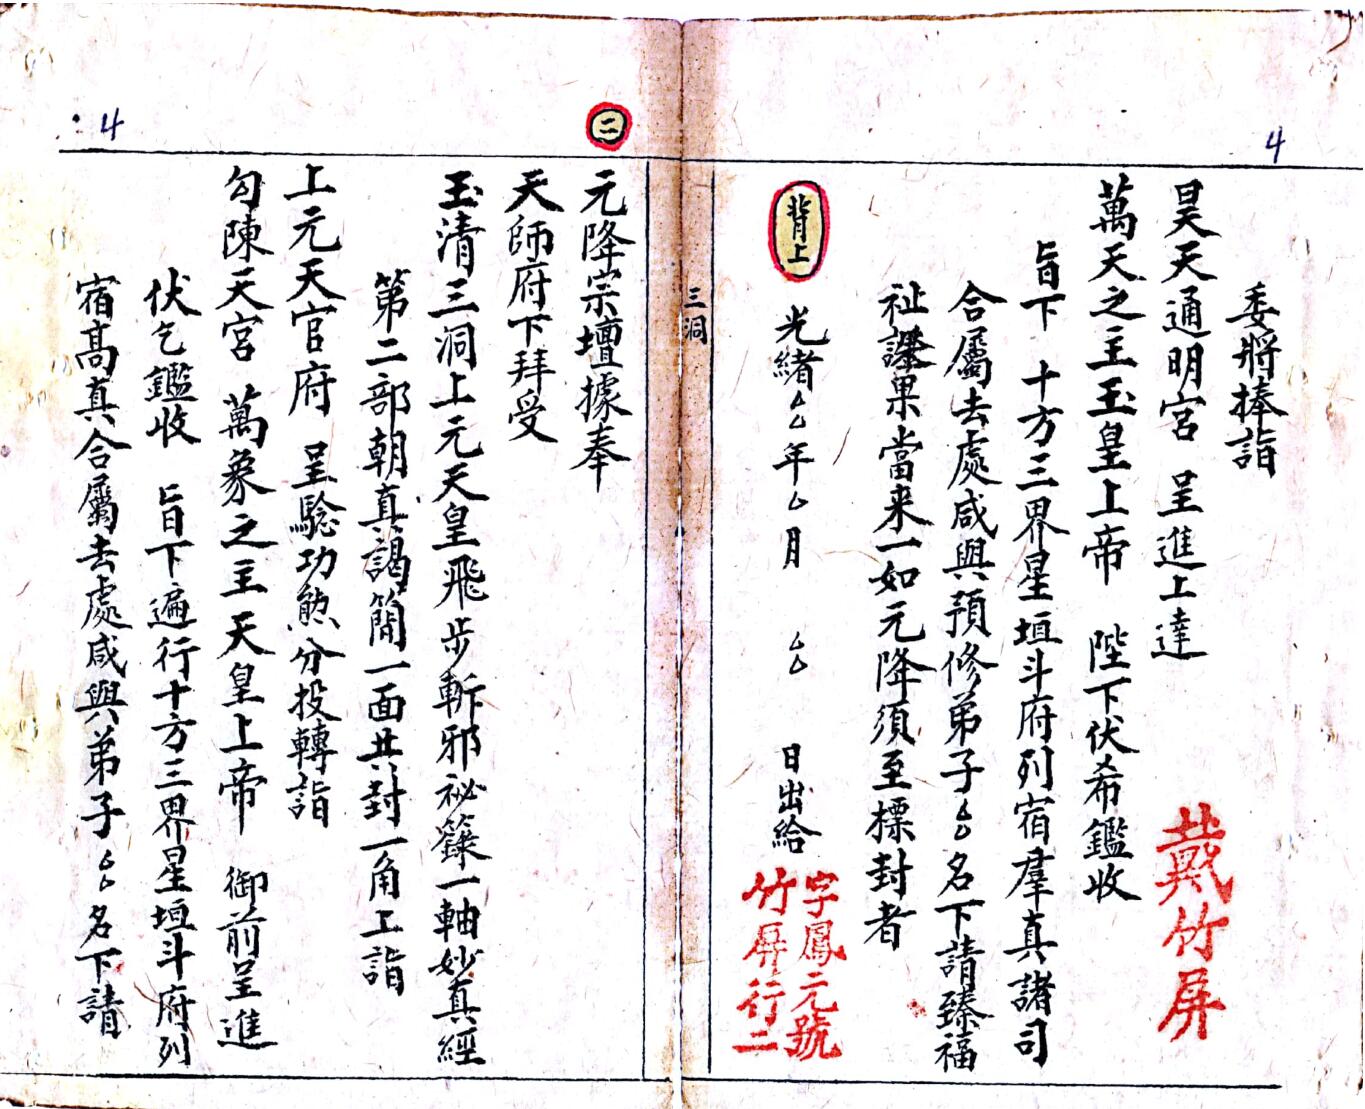 4
委將捧詣
昊天通明宮 呈進上達
萬天之主玉皇上帝 陛下伏希鑑收
旨下 十方三界星垣斗府列宿羣真諸司
合屬去處咸與預修弟子厶厶名下請臻福
祉課果當来一如元降須至標封者
背上
光緒厶厶年厶月 厶厶 日出給
戴竹屏
字鳳元號
竹屏行二
三洞
二
4
元降宗壇據奉
天師府下拜受
玉清三洞上元天皇飛步斬邪祕籙一軸妙真經
第二部朝真謁簡一面共封一角上詣
上元天官府 呈驗功熊分投轉詣
勾陳天宮 萬象之主天皇上帝 御前呈進
伏乞鑑收 旨下遍行十方三界星垣斗府列
宿高真合屬去處咸與弟子厶厶名下請